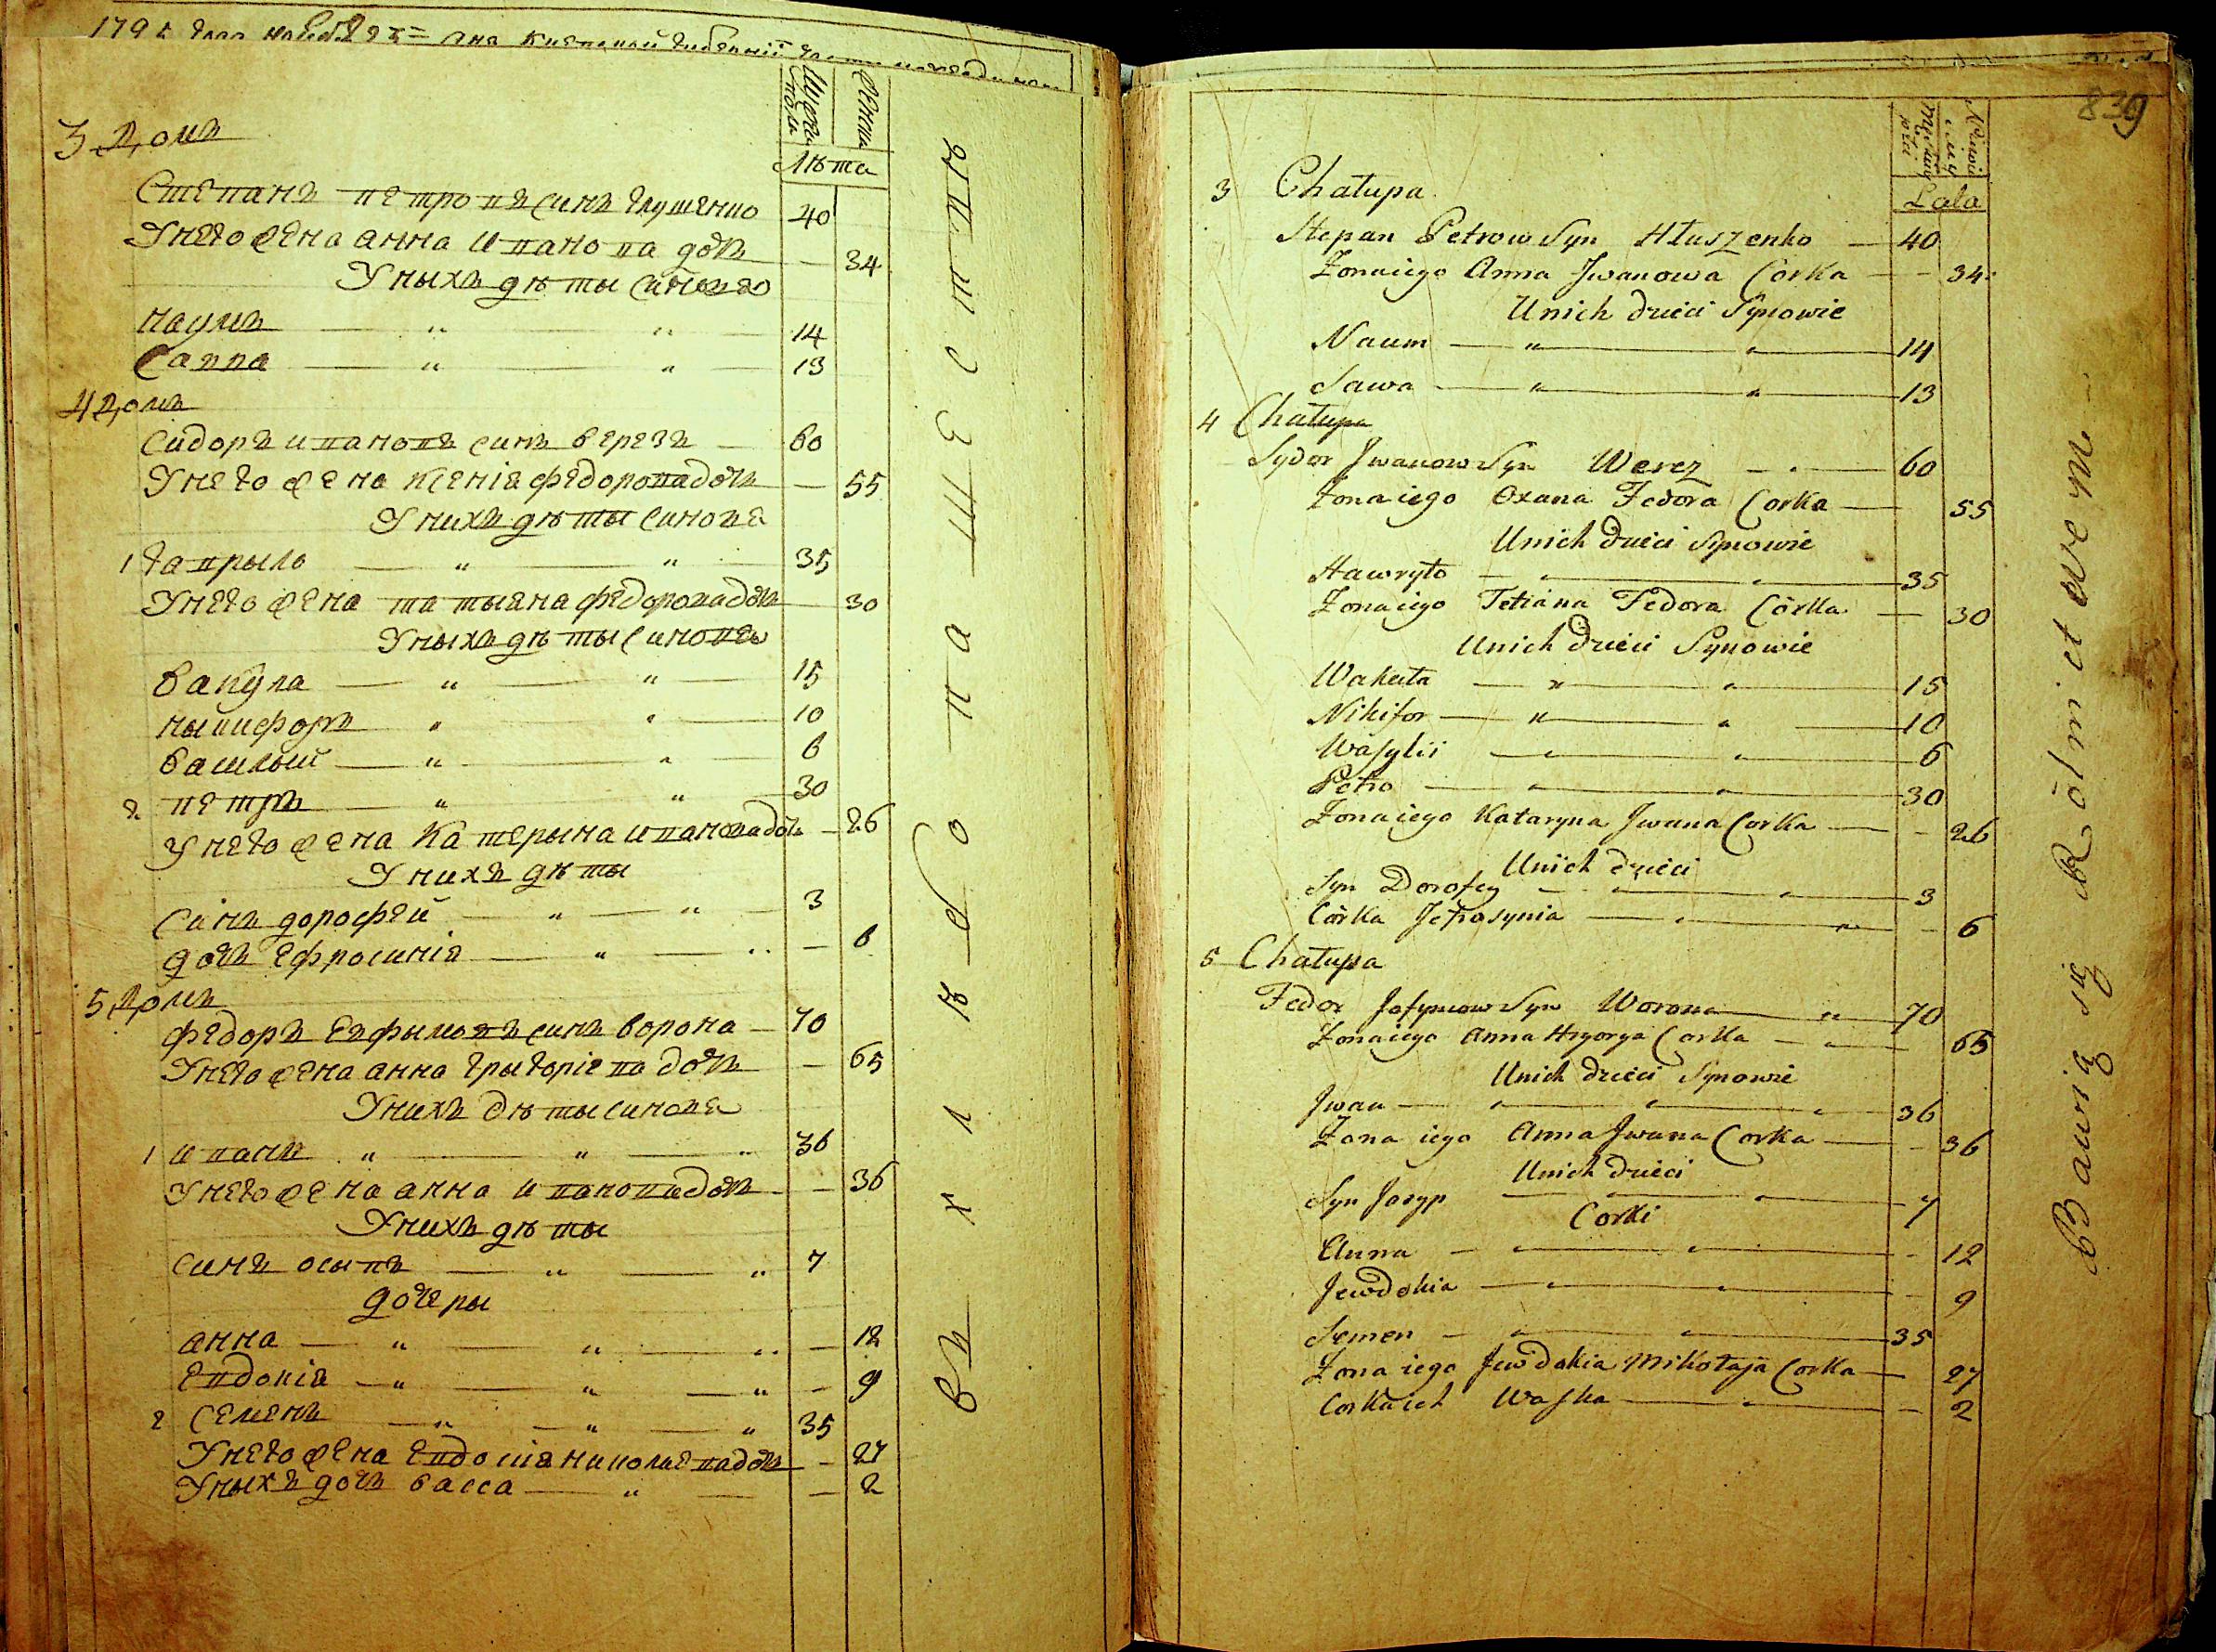 3 Домъ
Мужеска полу
Женска
Лѣта
Степанъ петровъ синъ глушенко 40
Унего жена анна иванова дочъ — 34
Уныхъ дѣты синовѣ
наумъ — " — " — 14
Савва — " — " — 13
4 Домъ
Сидоръ ивановъ синъ верезъ — 60
Унего жена ксенія федоровадочъ — 55
Унихъ дѣты синовѣ
1 гаврыло — " — " — 35
Унего жена татыана федоровадочъ — 30
Уныхъ дѣты синовѣ
вакула — " — " — 15
ныкифоръ — " — " — 10
василый — " — " — 6
2 петръ — " — " — 30
Унего жена катерына ивановадочъ — 26
Унихъ дѣты
Синъ дорофей — " — " — 3
дочъ ефросинія — " — — 6
5 Домъ
федоръ Евфымовъ синъ ворона — 70
Унего жена анна григоріева дочъ — 65
Унихъ дѣты синовѣ
1 иванъ " — " — " 36
Унего жена анна ивановадочъ — 36
Унихъ дѣты
Синъ осыпъ — " — " 7
дочеры
анна — " — " — — 12
Евдокія — " — " — " — 9
2 Семенъ — " — " — " 35
Унего жена Евдокія николаевадочъ — 27
Уныхъ дочъ васса — " — — 2
въ хлѣборобствѣ
839
Lata
3 Chałupa
Stepan Petrow Syn Hłuszenko — 40
Żona iego Anna Jwanowa Corka — 34
Unich dzieci Synowie
Naum — " — " — 14
Sawa — " — " — 13
4 Chałupa
Sydor Jwanow Syn Werez — 60
Żona iego Oxana Fedora Corka — 55
Unich dzieci Synowie
Hawryło — " — " — 35
Żona iego Tetiana Fedora Córka — 30
Unich dzieci Synowie
Wakuła — " — " — 15
Nikifor — " — " — 10
Wasylii — " — " — 6
Petro — " — " — 30
Żona iego Kataryna Jwana Corka — 26
Unich dzieci
Syn Dorofey — " — " — 3
Córka Jefrosynia — " — " — 6
5 Chałupa
Fedor Jofymow Syn Worona — " — 70
Żona iego Anna Hryorya Corka — 65
Unich dzieci Synowie
Jwan — " — " — " 36
Żona iego Anna Jwana Corka — 36
Unich dzieci
Syn Josyp — " — " — 7
Corki
Anna — " — " — 12
Jewdokia — " — " — 9
Semen — " — " — 35
Żona iego Jewdokia Mikołaja Corka — 27
Corka ich Waska — " — 2
Bawią się Rolnictwem